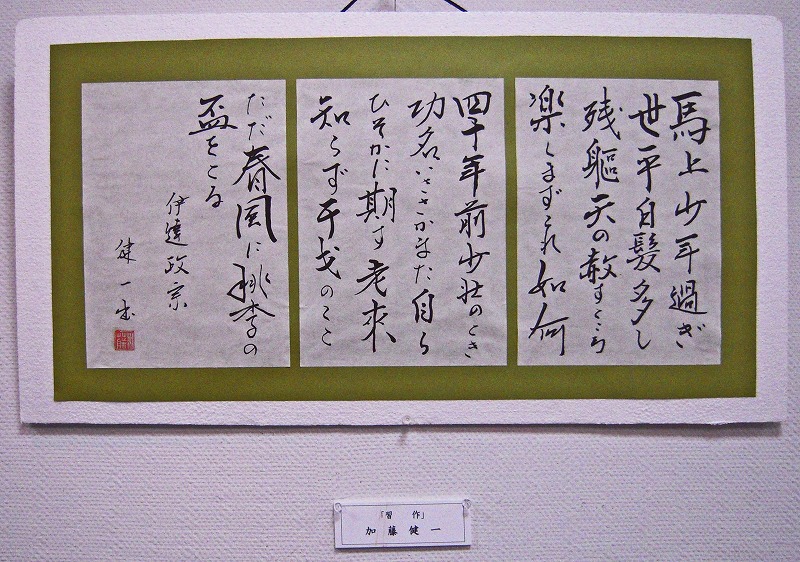 馬上少年過ぎ
世平白髪多し
残軀天の赦すところ
楽しまずこれ如何
四十年前少壮のとき
功名いささかまた自ら
ひそかに期す老来
知らず干戈のこと
ただ春風に桃李の
盃をとる
伊達政宗
健一书
「習 作」
加藤健一